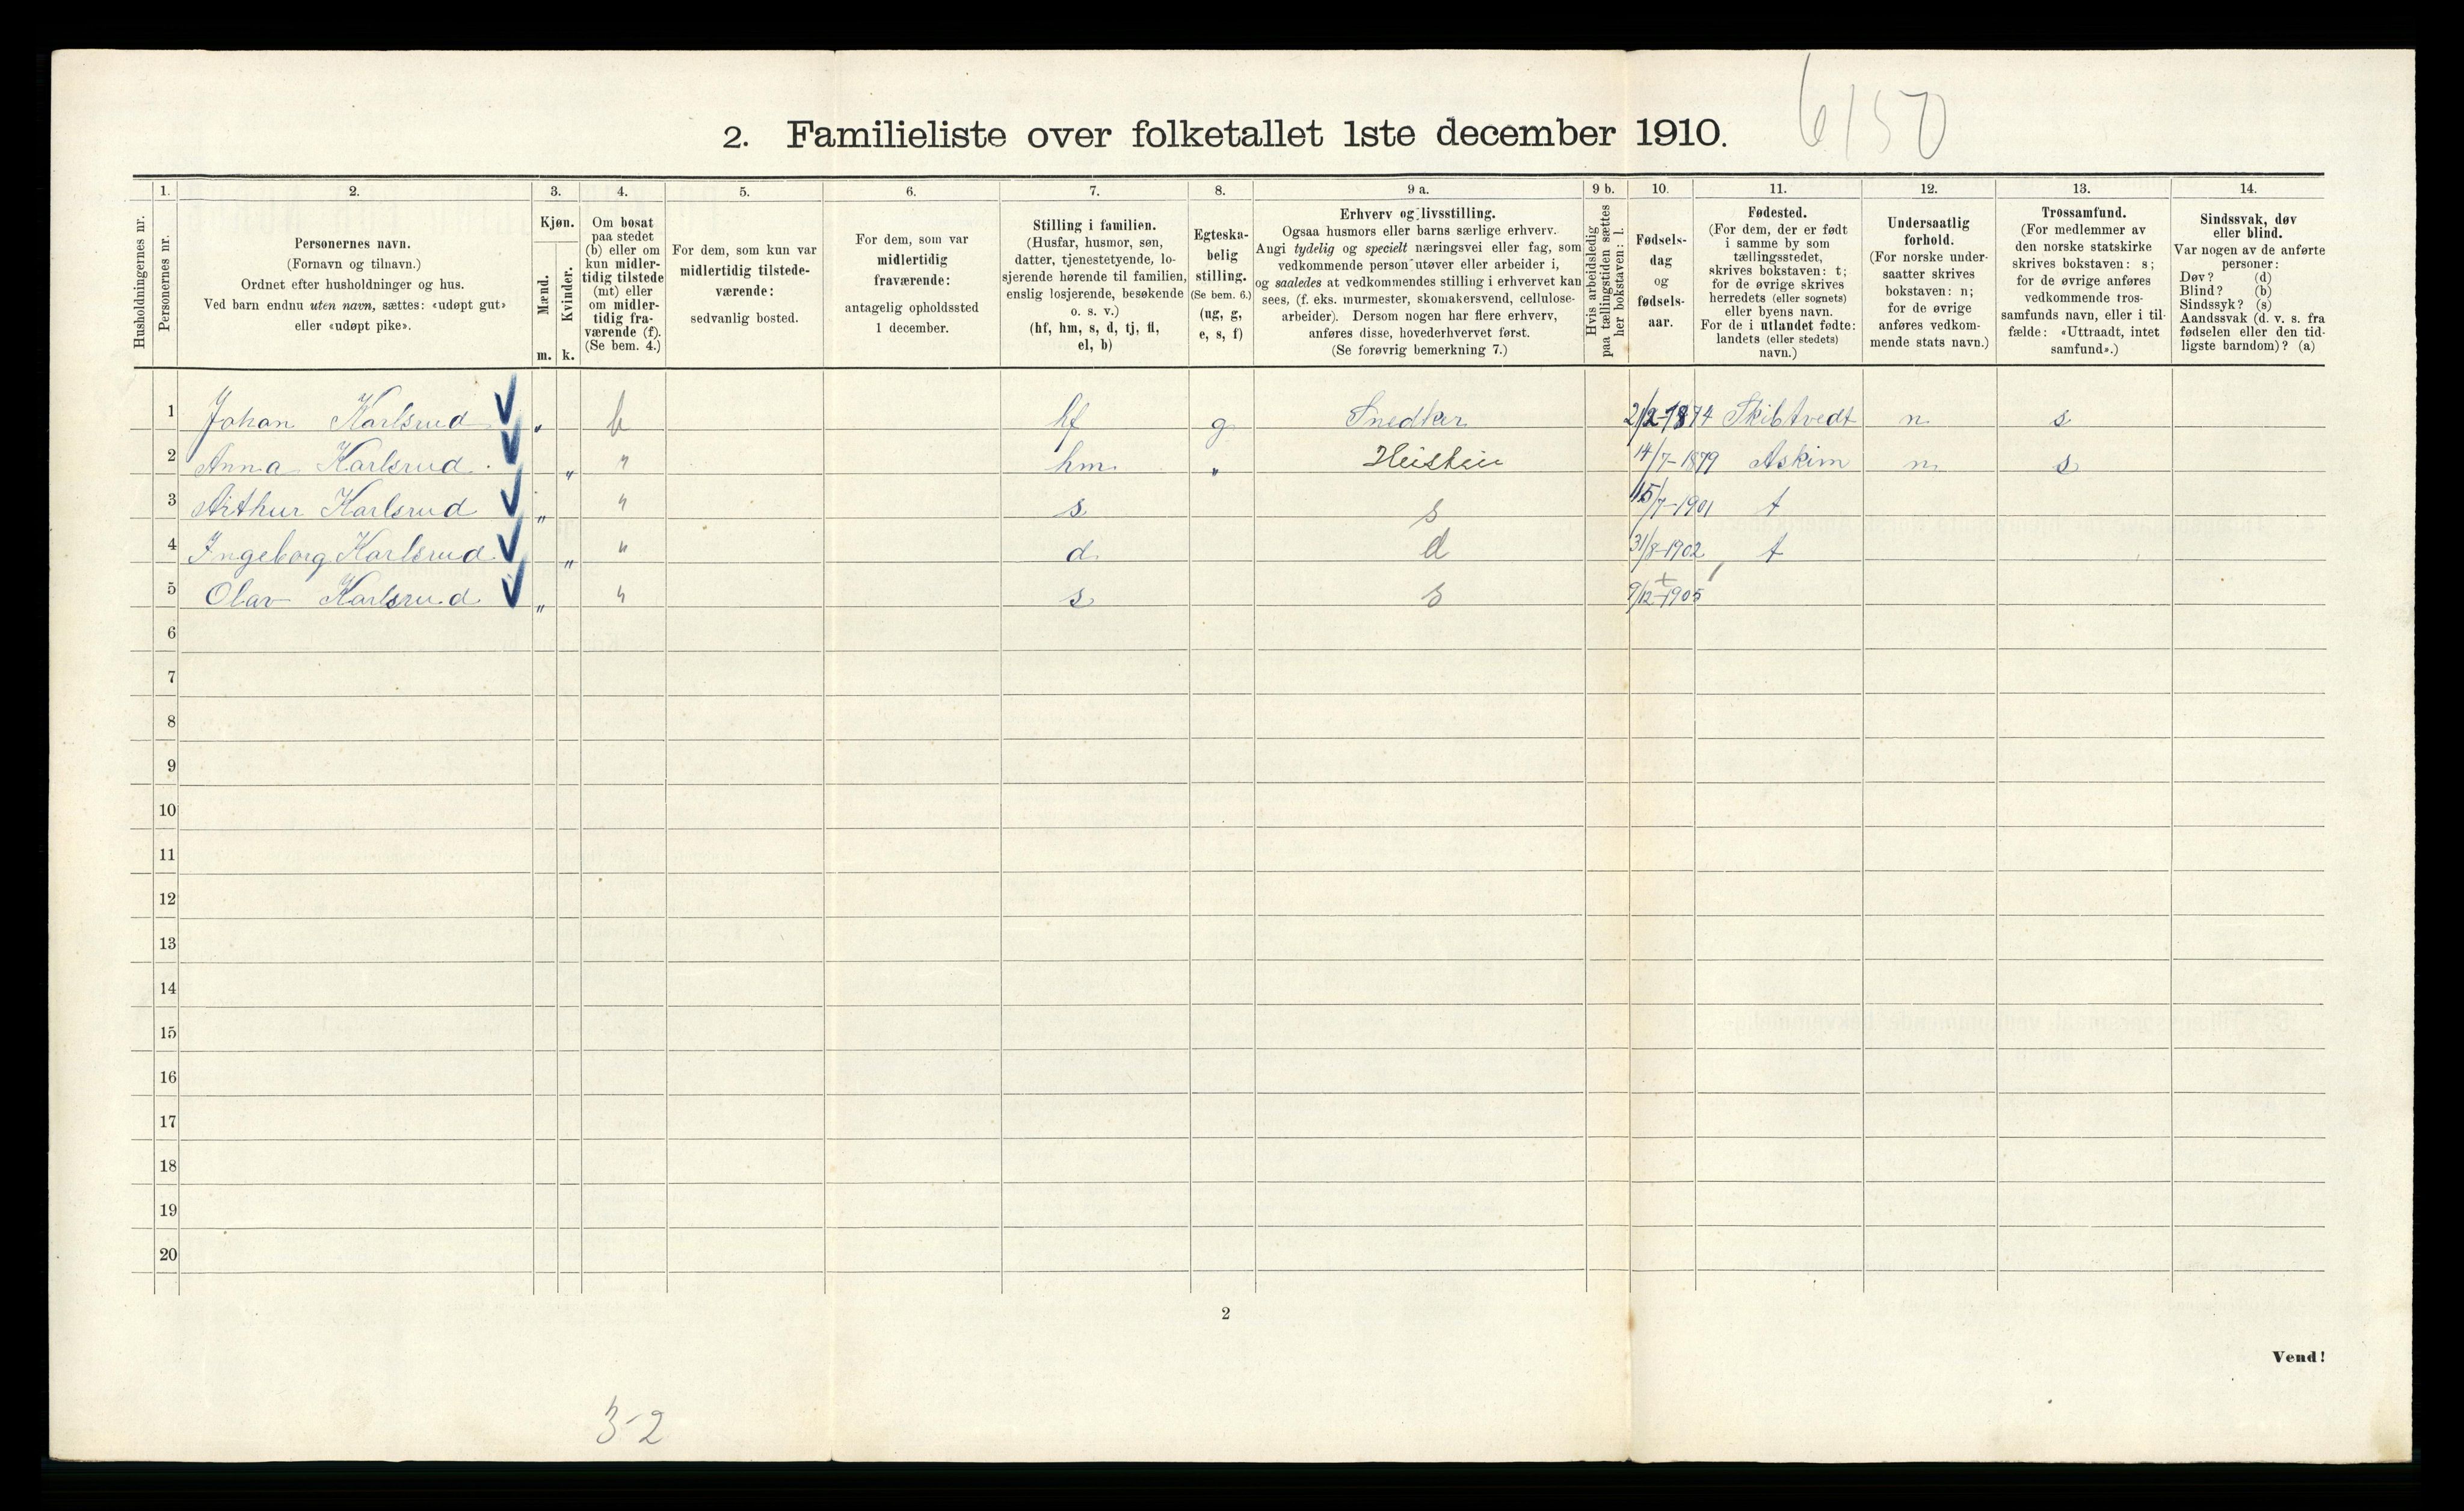 6150
2. Familieliste over folketallet 1ste december 1910.
Husholdningernes nr.
1.
Personernes nr.
2.
Personernes navn.
(Fornavn og tilnavn.)
Ordnet efter husholdninger og hus.
Ved barn endnu uten navn, sættes: «udøpt gut»
eller «udøpt pike».
3.
Kjøn.
Mænd.
Kvinder.
m. k.
4.
Om bosat
paa stedet
(b) eller om
kun midler-
tidig tilstede
(mt) eller
om midler-
tidig fra-
værende (f).
(Se bem. 4.)
5.
For dem, som kun var
midlertidig tilstede-
værende:
sedvanlig bosted.
6.
For dem, som var
midlertidig
fraværende:
antagelig opholdssted
1 december.
7.
Stilling i familien.
(Husfar, husmor, søn,
datter, tjenestetyende, lo-
sjerende hørende til familien,
enslig losjerende, besøkende
o. s. v.)
(hf, hm, s, d, tj, fl,
el, b)
8.
Egteska-
belig
stilling.
(Se bem. 6.)
(ug, g,
e, s, f)
9 a.
Erhverv og livsstilling.
Ogsaa husmors eller barns særlige erhverv.
Angi tydelig og specielt næringsvei eller fag, som
vedkommende person utøver eller arbeider i,
og saaledes at vedkommendes stilling i erhvervet kan
sees, (f. eks. murmester, skomakersvend, cellulose-
arbeider). Dersom nogen har flere erhverv,
anføres disse, hovederhvervet først.
(Se forøvrig bemerkning 7.)
9 b.
Hvis arbeidsledig
paa tællingstiden sættes
her bokstaven: l.
10.
Fødsels-
dag
og
fødsels-
aar.
11.
Fødested.
(For dem, der er født
i samme by som
tællingsstedet,
skrives bokstaven: t;
for de øvrige skrives
herredets (eller sognets)
eller byens navn.
For de i utlandet fødte:
landets (eller stedets)
navn.)
12.
Undersaatlig
forhold.
(For norske under-
saatter skrives
bokstaven: n;
for de øvrige
anføres vedkom-
mende stats navn.)
13.
Trossamfund.
(For medlemmer av
den norske statskirke
skrives bokstaven: s;
for de øvrige anføres
vedkommende tros-
samfunds navn, eller i til-
fælde: «Uttraadt, intet
samfund».)
14.
Sindssvak, døv
eller blind.
Var nogen av de anførte
personer:
Døv? (d)
Blind? (b)
Sindssyk? (s)
Aandssvak (d. v. s. fra
fødselen eller den tid-
ligste barndom)? (a)
1 Johan Karlsrud „ b hf g Snedker 21/2-1874 Skibtvedt n s
2 Anna Karlsrud „ „ hm „ 14/7-1879 Askim n s
3 Arthur Karlsrud „ „ s s 15/7-1901 t
4 Ingeborg Karlsrud „ „ d d 31/8-1902 t
5 Olav Karlsrud „ „ s s 9/12-1905
6
7
8
9
10
11
12
13
14
15
16
17
18
19
20
2
Vend!
3-2